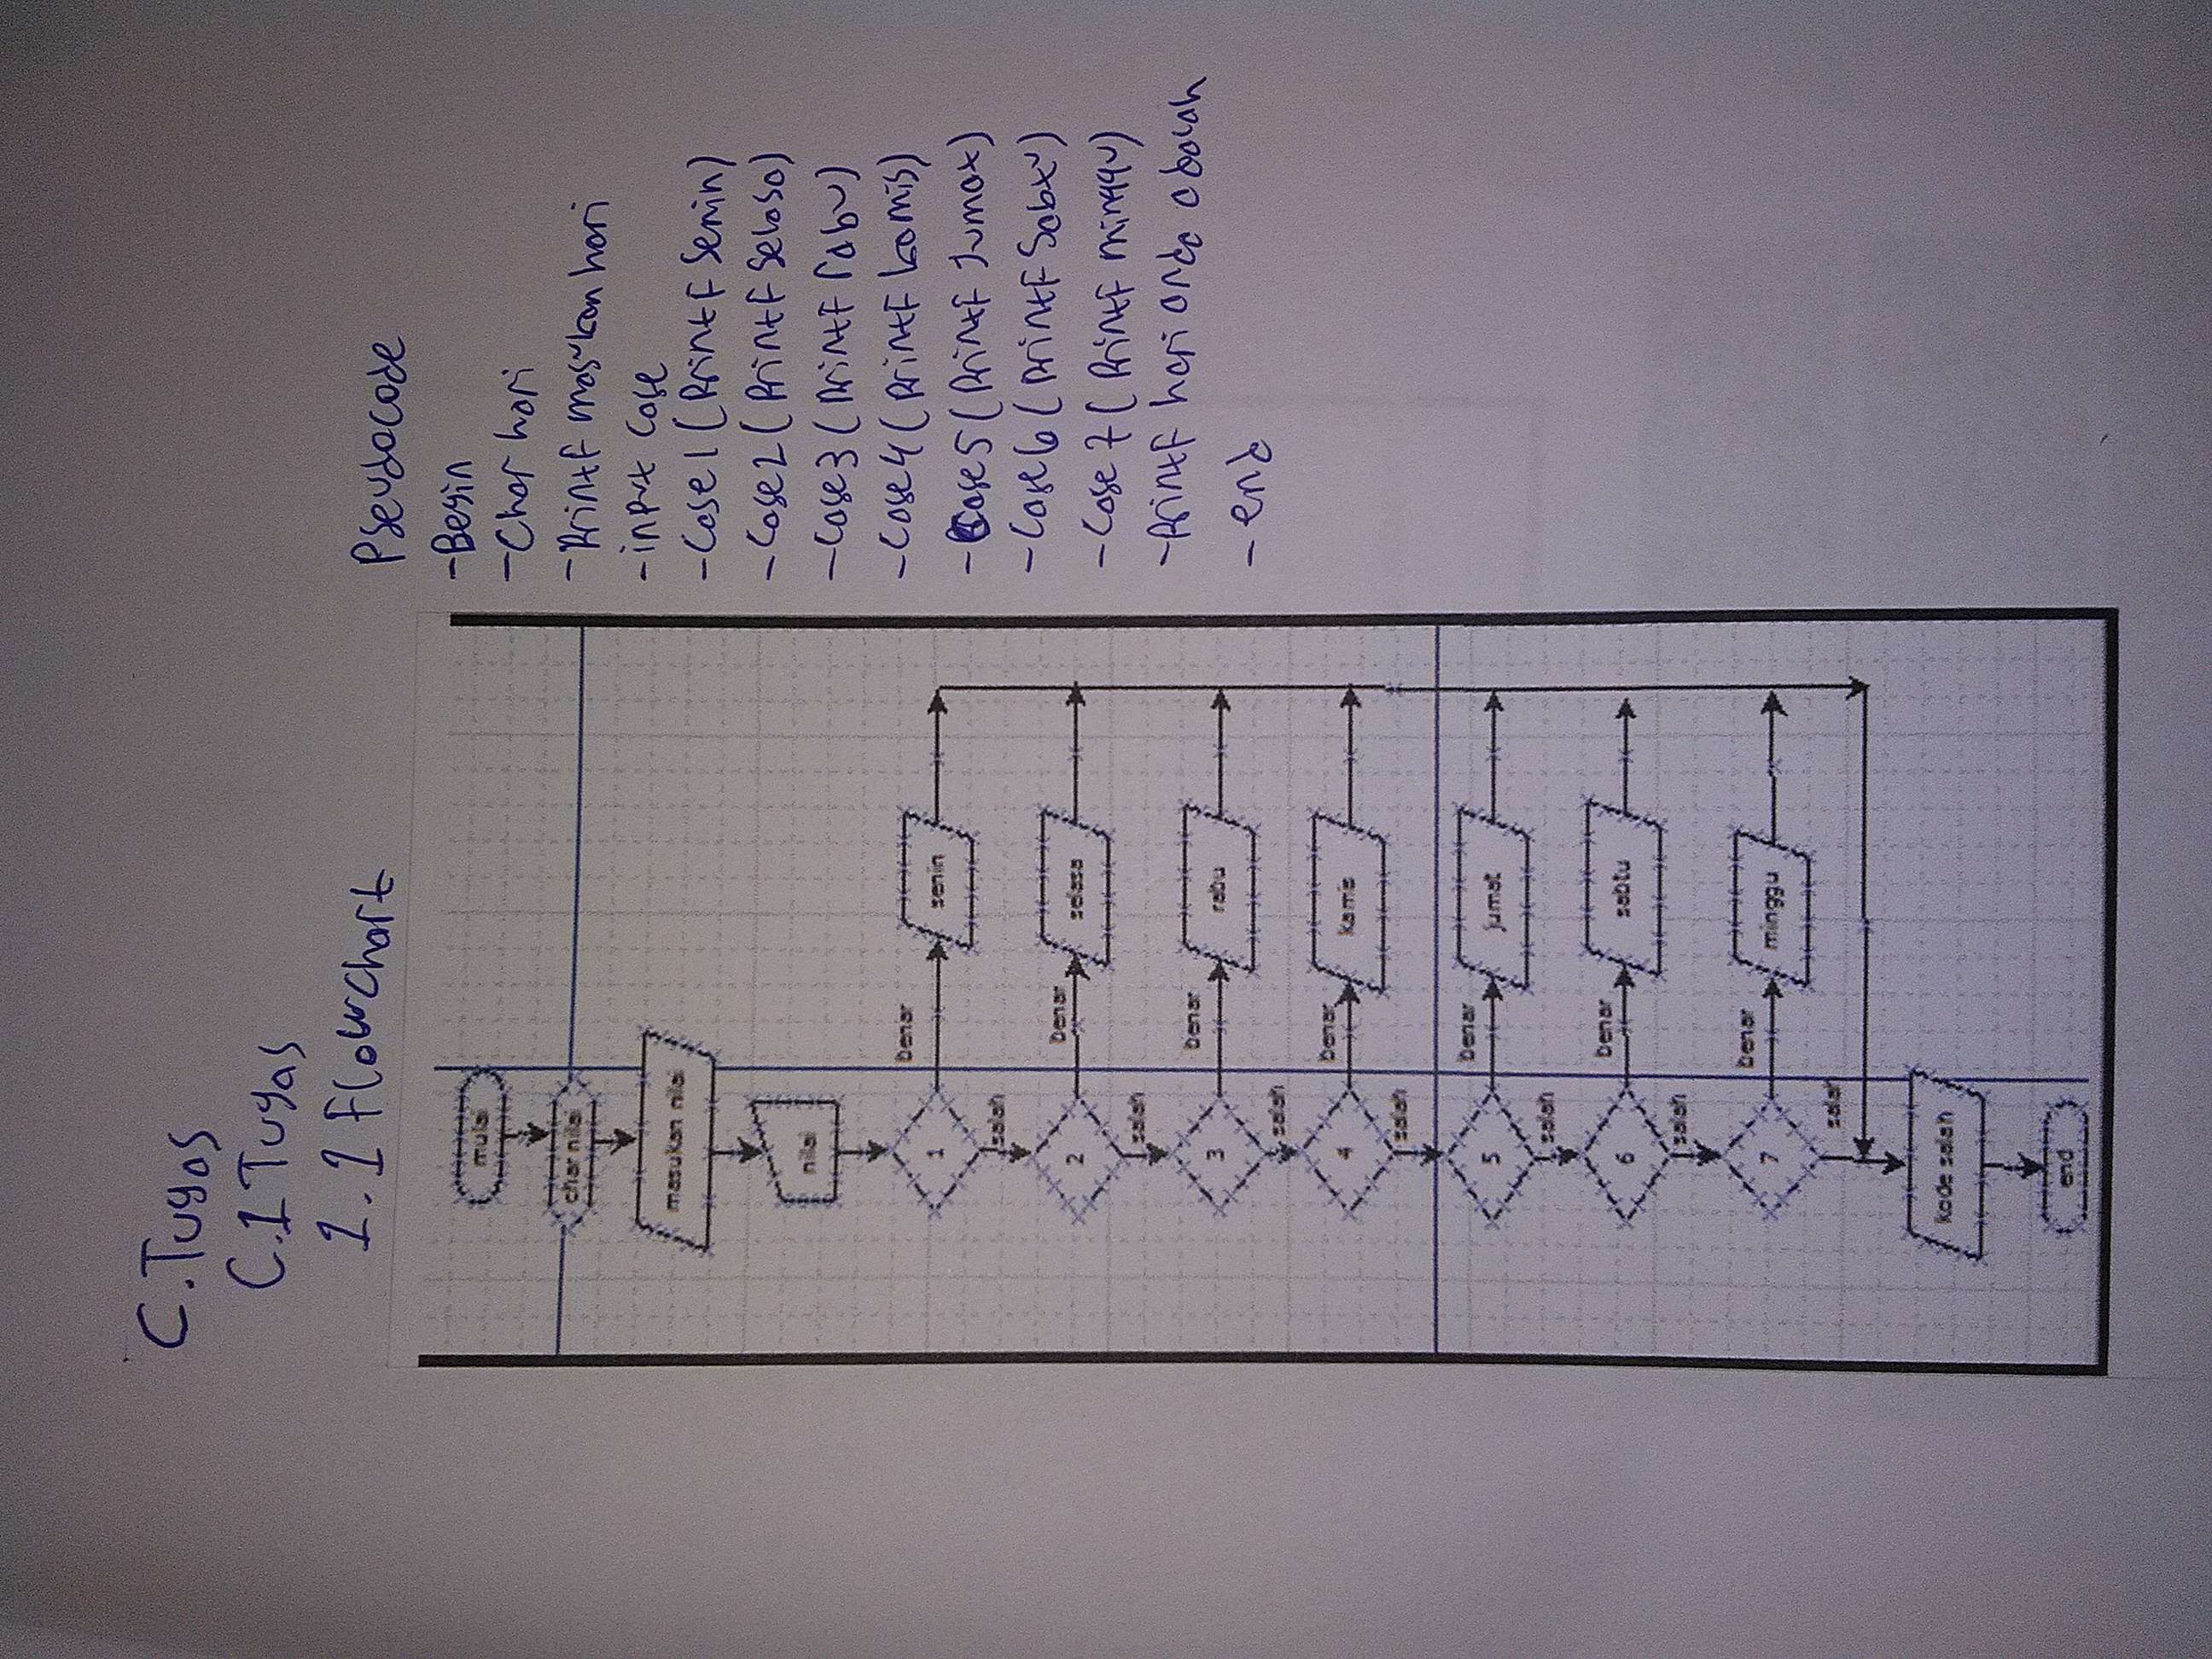 C. Tugas
C.1 Tugas
1.1 Flowchart
mulai
char nilai
masukan nilai
nilai
1
benar
senin
salah
2
benar
selasa
salah
3
benar
rabu
salah
4
benar
kamis
salah
5
benar
jumat
salah
6
benar
sabtu
salah
7
benar
minggu
salah
kode salah
end
Pseudocode
- Begin
- Char hari
- Printf masukan hari
- input case
- Case 1 (Printf Senin)
- Case 2 (Printf Selasa)
- Case 3 (Printf rabu)
- Case 4 (Printf kamis)
- Case 5 (Printf Jumat)
- Case 6 (Printf Sabtu)
- Case 7 (Printf minggu)
- Printf hari anda adalah
- end